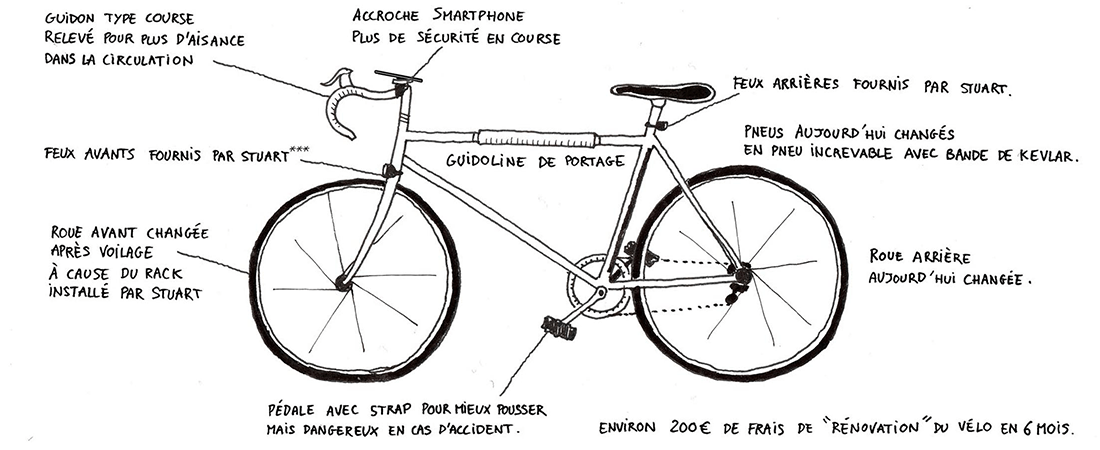 GUIDON TYPE COURSE
RELEVÉ POUR PLUS D'AISANCE
DANS LA CIRCULATION
ACCROCHE SMARTPHONE
PLUS DE SÉCURITÉ EN COURSE
FEUX ARRIÈRES FOURNIS PAR STUART.
PNEUS AUJOURD'HUI CHANGÉS
EN PNEU INCREVABLE AVEC BANDE DE KEVLAR.
FEUX AVANTS FOURNIS PAR STUART***
GUIDOLINE DE PORTAGE
ROUE AVANT CHANGÉE
APRÈS VOILAGE
À CAUSE DU RACK
INSTALLÉ PAR STUART
ROUE ARRIÈRE
AUJOURD'HUI CHANGÉE.
PÉDALE AVEC STRAP POUR MIEUX POUSSER
MAIS DANGEREUX EN CAS D'ACCIDENT.
ENVIRON 200€ DE FRAIS DE "RÉNOVATION" DU VÉLO EN 6 MOIS.